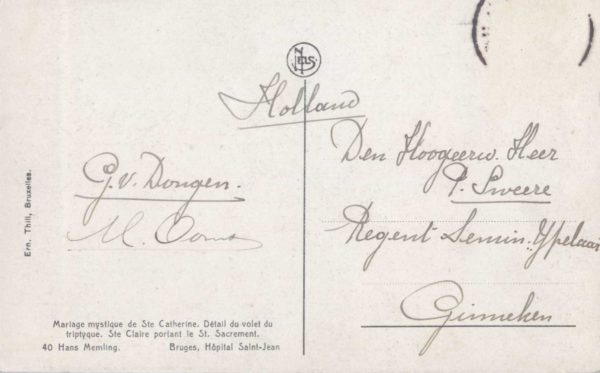 Nels
Holland
Den Hoogeerw. Heer
P. Sweere
Regent Semin. Ypelaar
Ginneken
G. v. Dongen.
M.
Ern. Thill, Bruxelles.
Mariage mystique de Ste Catherine. Détail du volet du
triptyque. Ste Claire portant le St. Sacrement.
40 Hans Memling. Bruges, Hôpital Saint-Jean